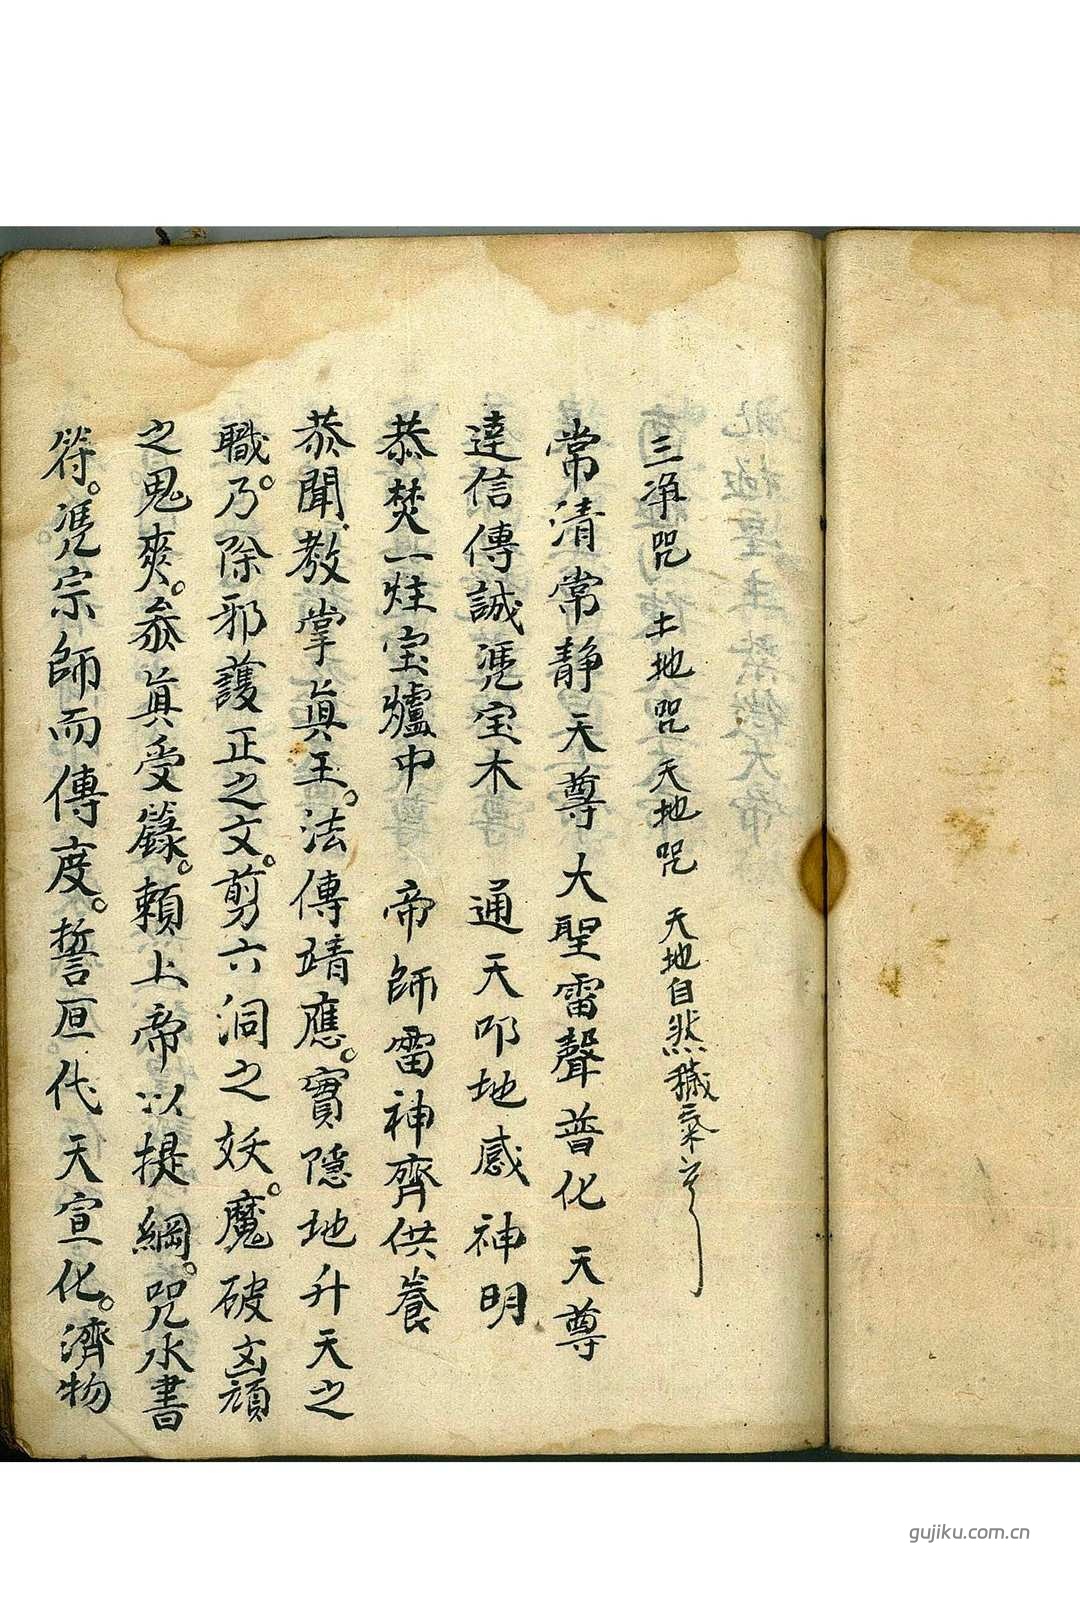 三净咒 土地咒 天地咒 天地自然穢氣
常清常靜天尊 大聖雷聲普化天尊
達信傳誠凴宝木 通天叩地感神明
恭焚一炷宝爐中 帝師雷神齊供養
恭聞教掌眞王。法傳靖應。實隱地升天之
職。乃除邪護正之文。剪六洞之妖。魔破
之鬼爽。叅眞受籙。頼上帝以提綱。咒水書
符。凴宗師而傳度。誓亘代天宣化。濟物
gujiku.com.cn